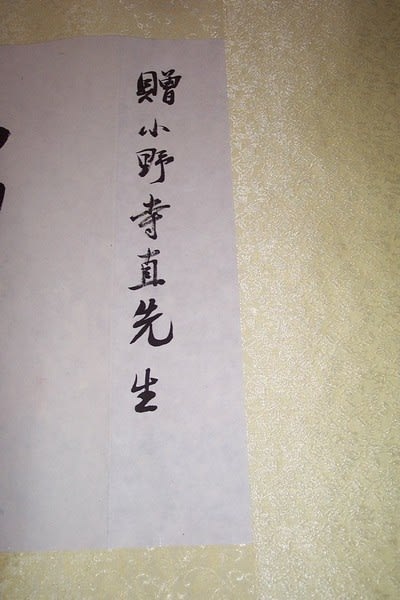 贈小野寺直先生